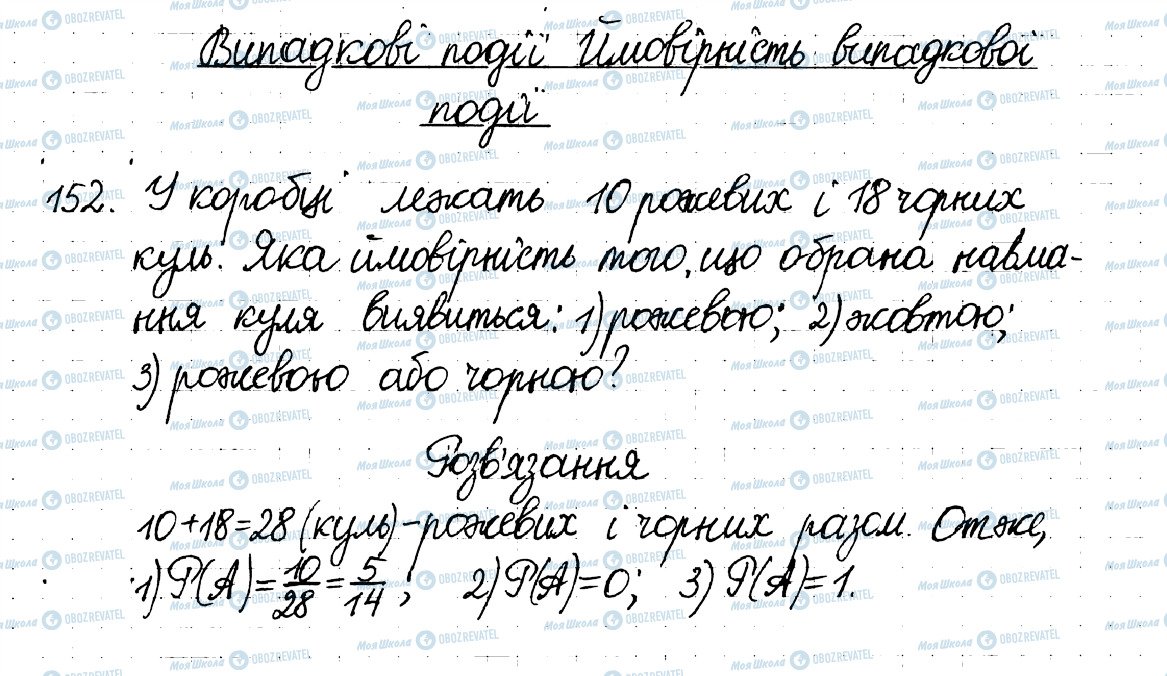 Випадкові події Ймовірність випадкової
події
152. У коробці лежать 10 рожевих і 18 чорних
куль. Яка ймовірність того, що обрана навма-
ння куля виявиться: 1) рожевою; 2) жовтою;
3) рожевою або чорною?
Розв'язання
10+18=28 (куль) – рожевих і чорних разом. Отже,
1) P(A)=10/28=5/14; 2) P(A)=0; 3) P(A)=1.
Моя Школа OBOZREVATEL